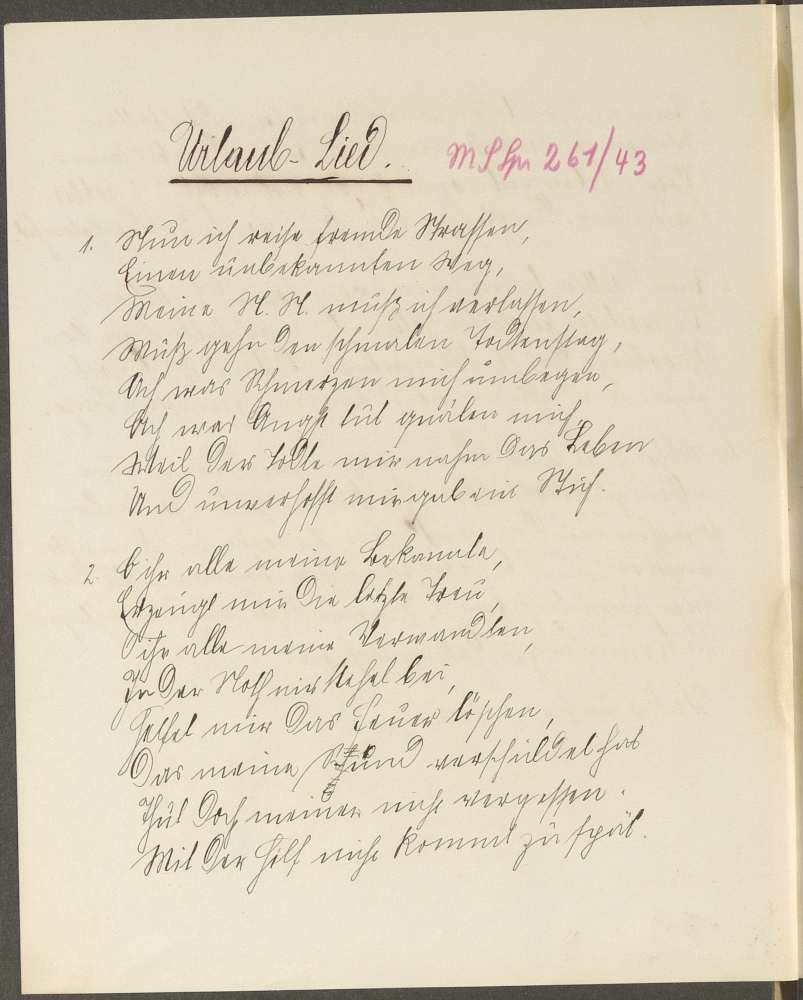 Urlaub-Lied.
MSSpr 261/43
1. Nun ich reise fremde Strassen,
Einen unbekannten Weg,
Meine N. N. muß ich verlassen,
Muß gehn den schmalen Todtensteg,
Ach was Schmerzen mich umbegen,
Ach was Angst tut quälen mich,
Weil der Todt mir nahm das Leben
Und unverhofft mir gab ein Stich.
2. O ihr alle meine Bekannte,
Erzeugt mir die letzte Treu,
O ihr alle meine Verwandten,
In der Noth mir stehet bei,
Helfet mir das Feuer löschen,
Das meine Sünd verschuldet hat
Thut doch meiner nicht vergessen.
Mit der Hilf nicht kommt zu spät.